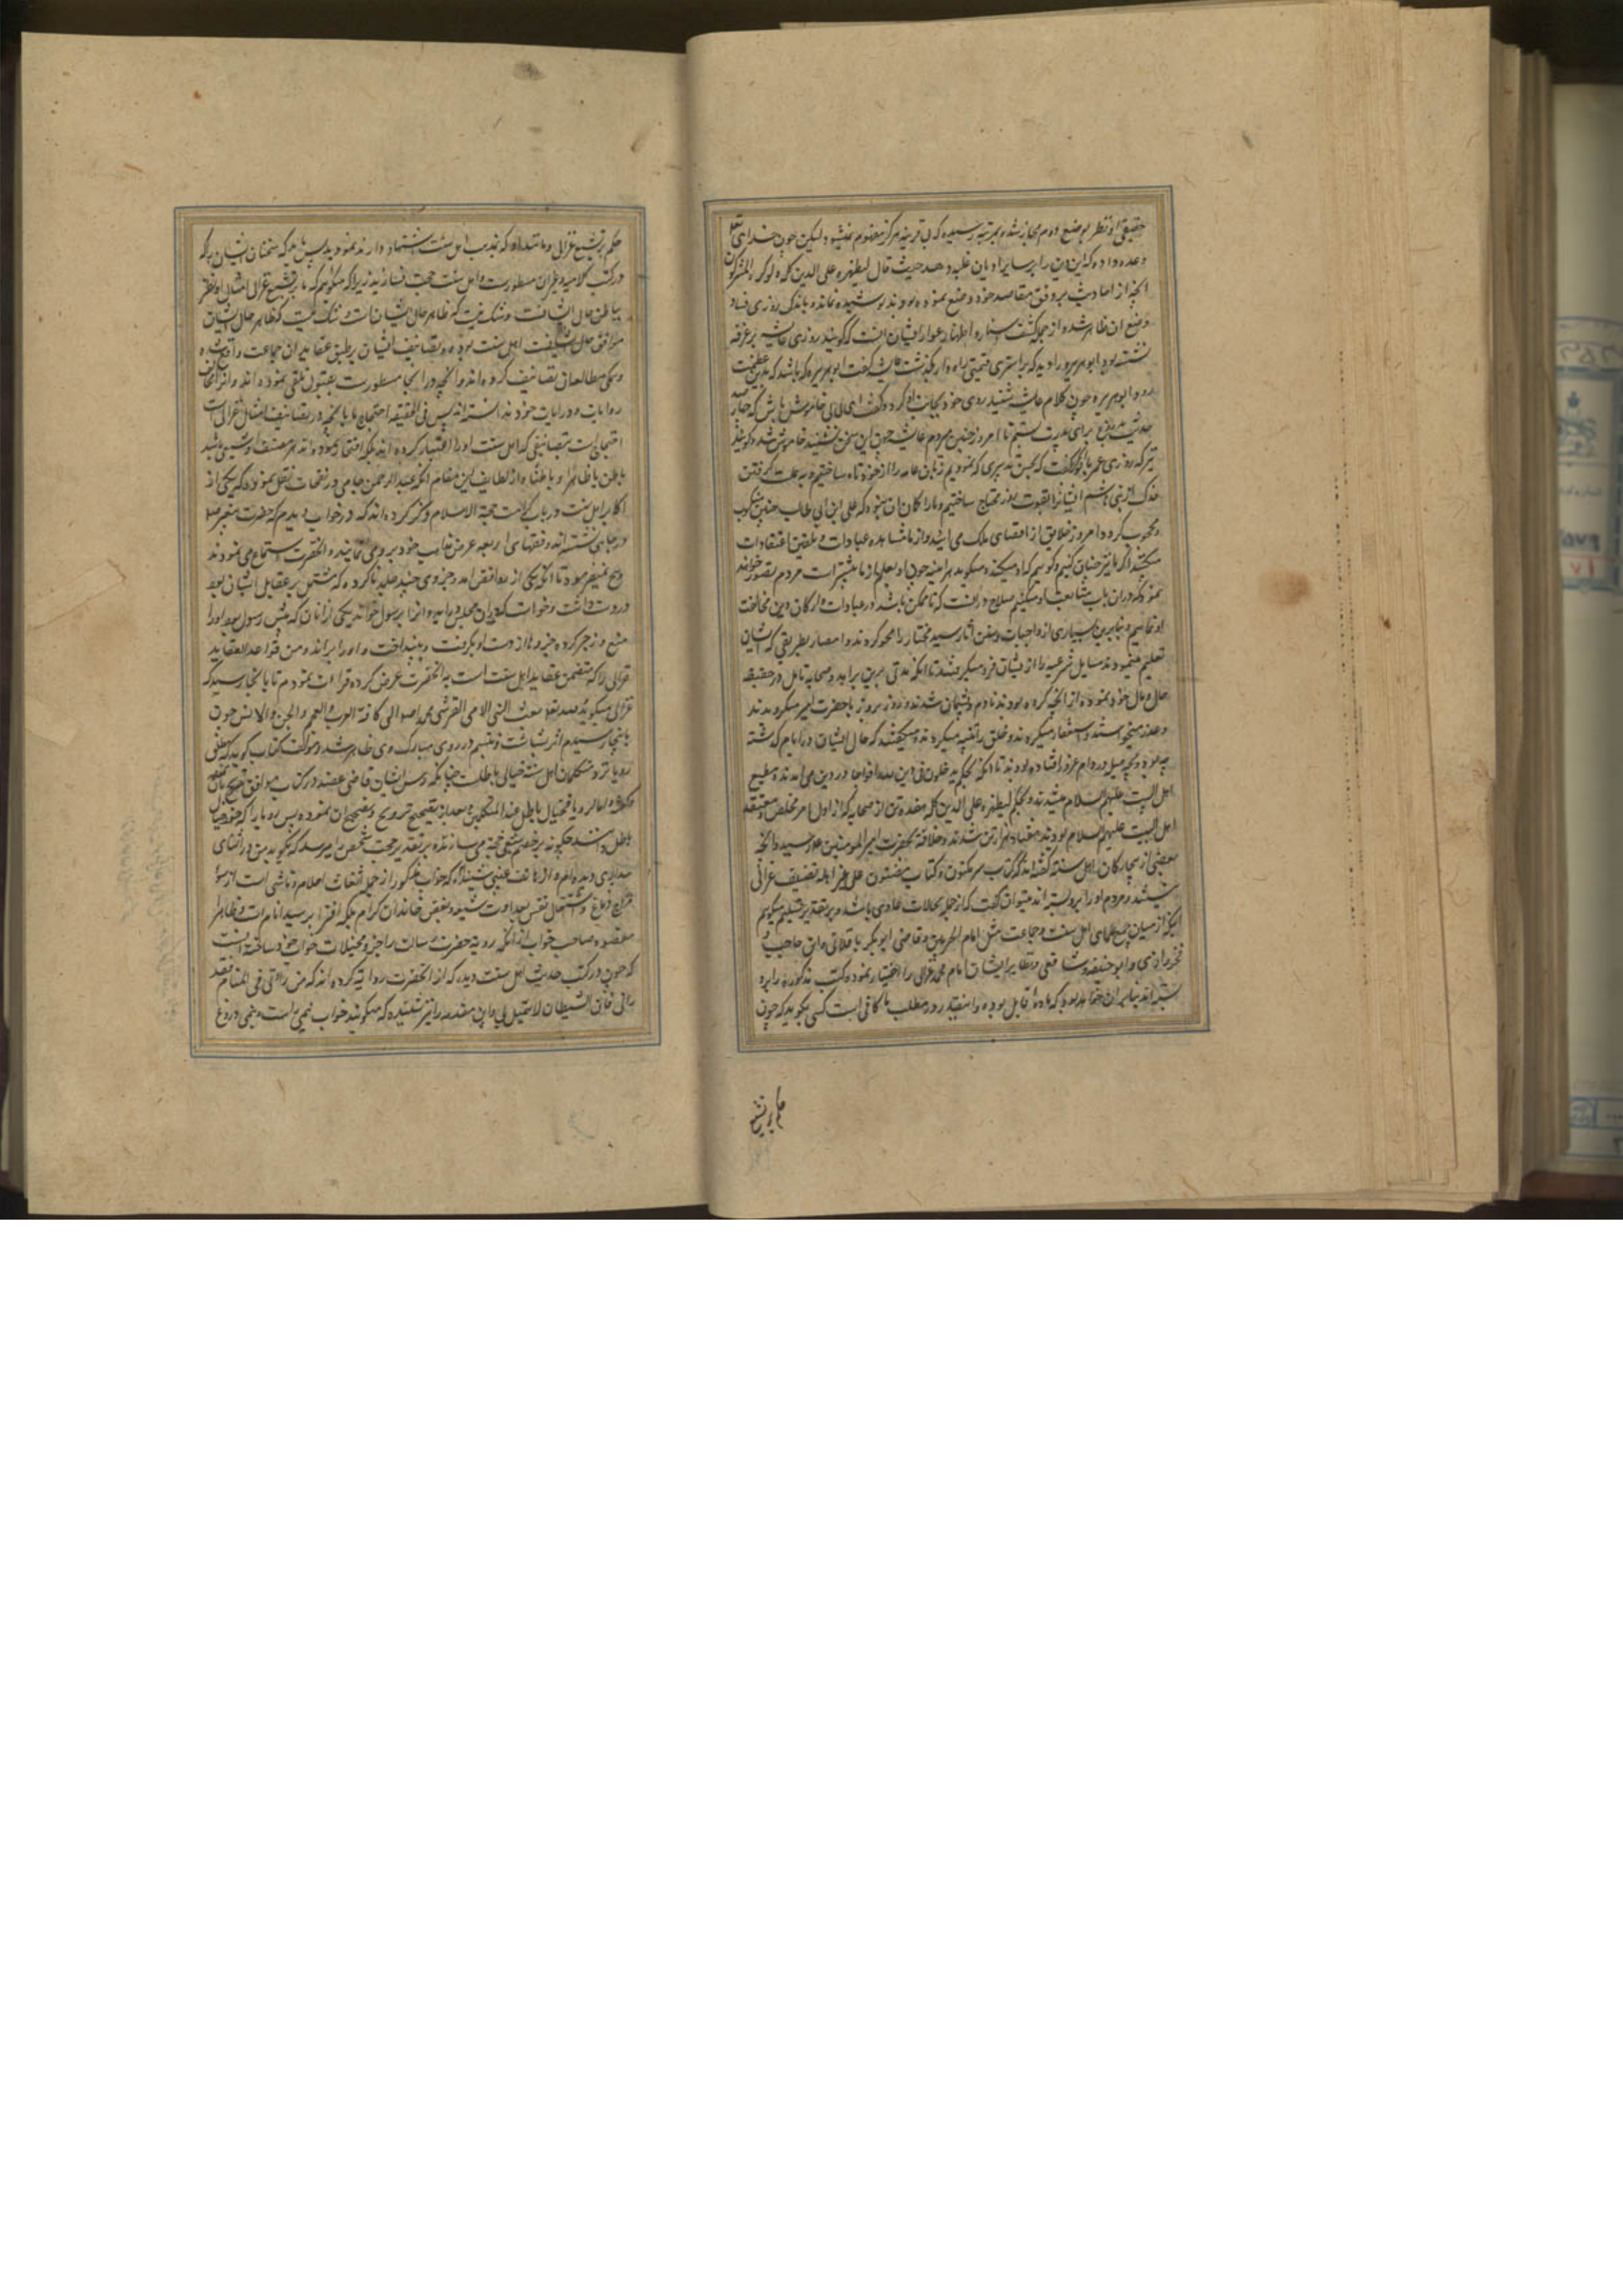 حقیقی از نظر بوضع دوم مجاز شده بمرتبه رسیده که بی قرینه هرگز مفهوم نمیشود لیکن چون خدای تعالی
وعده داده که این دین را بر سایر ادیان غلبه دهد حیث قال لیظهره علی الدین کله ولو کره المشرکون
آنچه از احادیث بر وفق مقاصد خود وضع نموده بودند پوشیده نماند و باندک روزی فساد
وضع آن ظاهر شد و از جمله کشف استار و اظهار عوار ایشان آنست که گویند روزی عایشه بر غرفه
نشسته بود ابوهریره را دید که بر استری قیمتی راه وار میگذشت عایشه گفت ابوهریره که باشد که بدین عظمت
رود ابوهریره چون کلام عایشه شنید روی خود بجانب او کرد و گفت ای
حدیث دروغ برای پدرت بستیم تا امروز چنین عایشه چون این سخن شنید خاموش شد و گویند
که روزی عمر با ابوبکر گفت که بحسن تدبیری که نمودیم زبان عامه را از خود کوتاه ساختیم و به جهت گرفتن
فدک از بنی هاشم ایشانرا بقوت روز محتاج ساختیم و ما را گمان آن نبود که علی ابن ابی طالب چنین منکوب
و محجوب گردد امروز خلایق از اقصای ملک می آیند و از ما مشاهده عبادات و تلقین اعتقادات
میکنند اگر ما نیز چنان کنیم و گوییم که او میکند و میگوید
نمود که در آن باب متابعت او میکنیم صلاح در آنست که تا ممکن باشد در عبادات و ارکان دین مخالفت
او نماییم و بنابرین بسیاری از واجبات و سنن آثار سید مختار را محو کردند و امصار بطریقی که ایشان
تعلیم مینمودند مسایل شرعیه را از ایشان فرا میگرفتند تا آنکه مدتی برین برآمد و صحابه تامل در حقیقت
حال و مال خود نموده از آنچه کرده بودند نادم و پشیمان شدند و روز بروز با حضرت امیر میگرویدند
و عذر میخواستند و استغفار میکردند و خلق را تنبیه میکردند و میگفتند که حال ایشان در ایام گذشته
چه بوده و بچه حیل در دام غرور افتاده بودند تا آنکه بحکم یدخلون فی دین الله افواجا در دین می آمدند و مطیع
اهل البیت علیهم السلام میشدند و بحکم لیظهره علی الدین کله هفده تن از صحابه که از اول امر مخلص و معتقد
اهل البیت علیهم السلام بودند هفتاد هزار تن شدند و خلافت بحضرت امیر المومنین علیه السلام رسید و آنچه
بعضی از بیچارگان اهل سنة گفته اند که کتاب سر مکنون و کتاب مضنون علی غیر اهله تصنیف غزالی
نیستند و مردم او را بر او بسته اند میتوان گفت که از جمله محالات عادی باشد و بر تقدیر تسلیم میگویم
اینکه از میان جمیع علمای اهل سنت و جماعت مثل امام الحرمین و قاضی ابوبکر باقلانی و ابن حاجب و
فخر رازی و ابو حنیفه و شافعی و نظایر ایشان امام محمد غزالی را اختیار نموده کتب مذکوره را برو
بسته اند بنابر آن خواهد بود که ماده قابل بوده و اینقدر در مطلب ما کافی است کسی نگوید که چون
حکم بر تشیع
حکم بر تشیع غزالی و مانند او که بمذهب اهل سنت اشتهار دارند نمودید پس باید که سخنان ایشان را که
در کتب کلامیه و غیر آن مسطورست بر اهل سنت حجت نسازید زیرا که میگوییم که ما بر تشیع غزالی و امثال او نظر
بباطن حال ایشانست و شک نیست که ظاهر حال ایشان
موافق حال اهل سنت بوده و تصانیف ایشان بر طبق عقاید آن جماعت واقع شده
و همگی مطالعه آن تصانیف کرده اند و آنچه در آنجا مسطورست بقبول تلقی نموده اند و آنرا
روایات و درایات خود دانسته اند پس فی الحقیقه احتجاج ما بآنچه در تصانیف امثال غزالی است
احتجاج است بتصانیفی که اهل سنت او را اعتبار کرده اند بلکه افتخار نموده اند هر مصنف او شیعی باشد
باطن یا ظاهرا و باطنا و از لطایف این مقام آنکه عبد الرحمن جامی در نفحات نقل نموده که یکی از
اکابر اهل سنت در باب کرامت حجة الاسلام ذکر کرده اند که در خواب دیدم که حضرت پیغمبر صلعم
در جایی نشسته اند و فقهای اربعه عرض مذاهب خود بروی مینمایند و آنحضرت استماع می نمودند
و هیچ نمیفرمودند تا آنکه یکی از روافض آمد و جزوی چند جلد ناکرده که مشتمل بر عقاید ایشان بود
در دست داشت و خواست که در آن مجلس در آید و آنرا بر رسول خواند یکی از آنان که پیش رسول بود او را
منع و زجر کرده جزوها از دست او بگرفت و بینداخت و او را براند و من قواعد العقاید
غزالی را که متضمن عقاید اهل سنت است به آنحضرت عرض کرده قرات نمودم تا بآنجا رسید که
غزالی میگوید بعث النبی الامی القرشی محمد اصلعم الی کافة العرب و العجم و الجن و الانس چون
بآنجا رسیدم اثر بشاشت و تبسم در روی مبارک وی ظاهر شد و مولف کتاب گوید که
رویا نزد متکلمان اهل سنة خیالی باطلست چنانکه رئیس ایشان قاضی عضد در کتاب مواقف تصریح بآن
و اما الرویا فخیال باطل عند المتکلمین و بعد از تنقیح و ترویج و تصحیح آن نموده پس رویا را که خود خیال
باطل دانند چگونه بر خصم شیعی حجت می سازند و بر تقدیر حجت شخصی را میرسد که بگوید من در اثنای
بیداری دیده ام و از هاتف غیبی شنیده ام که خواب مذکور از جمله اضغاث احلام و ناشی است از سوء
مزاج دماغ و اشتعال نفس بعداوت شیعه و بغض خاندان کرام بلکه افترا بر سید انام است و ظاهرا
مقصود صاحب خواب از آنکه رویه حضرت رسالت را جزو مخیلات خواب خود ساخته آنست
که چون در کتب حدیث اهل سنت دیده که از آنحضرت روایه کرده اند که من رآنی فی المنام فقد
رآنی فان الشیطان لا یتمثل بی و این مقدمه را نیز شنیده که میگویند خواب نمی است و نیمی دروغ